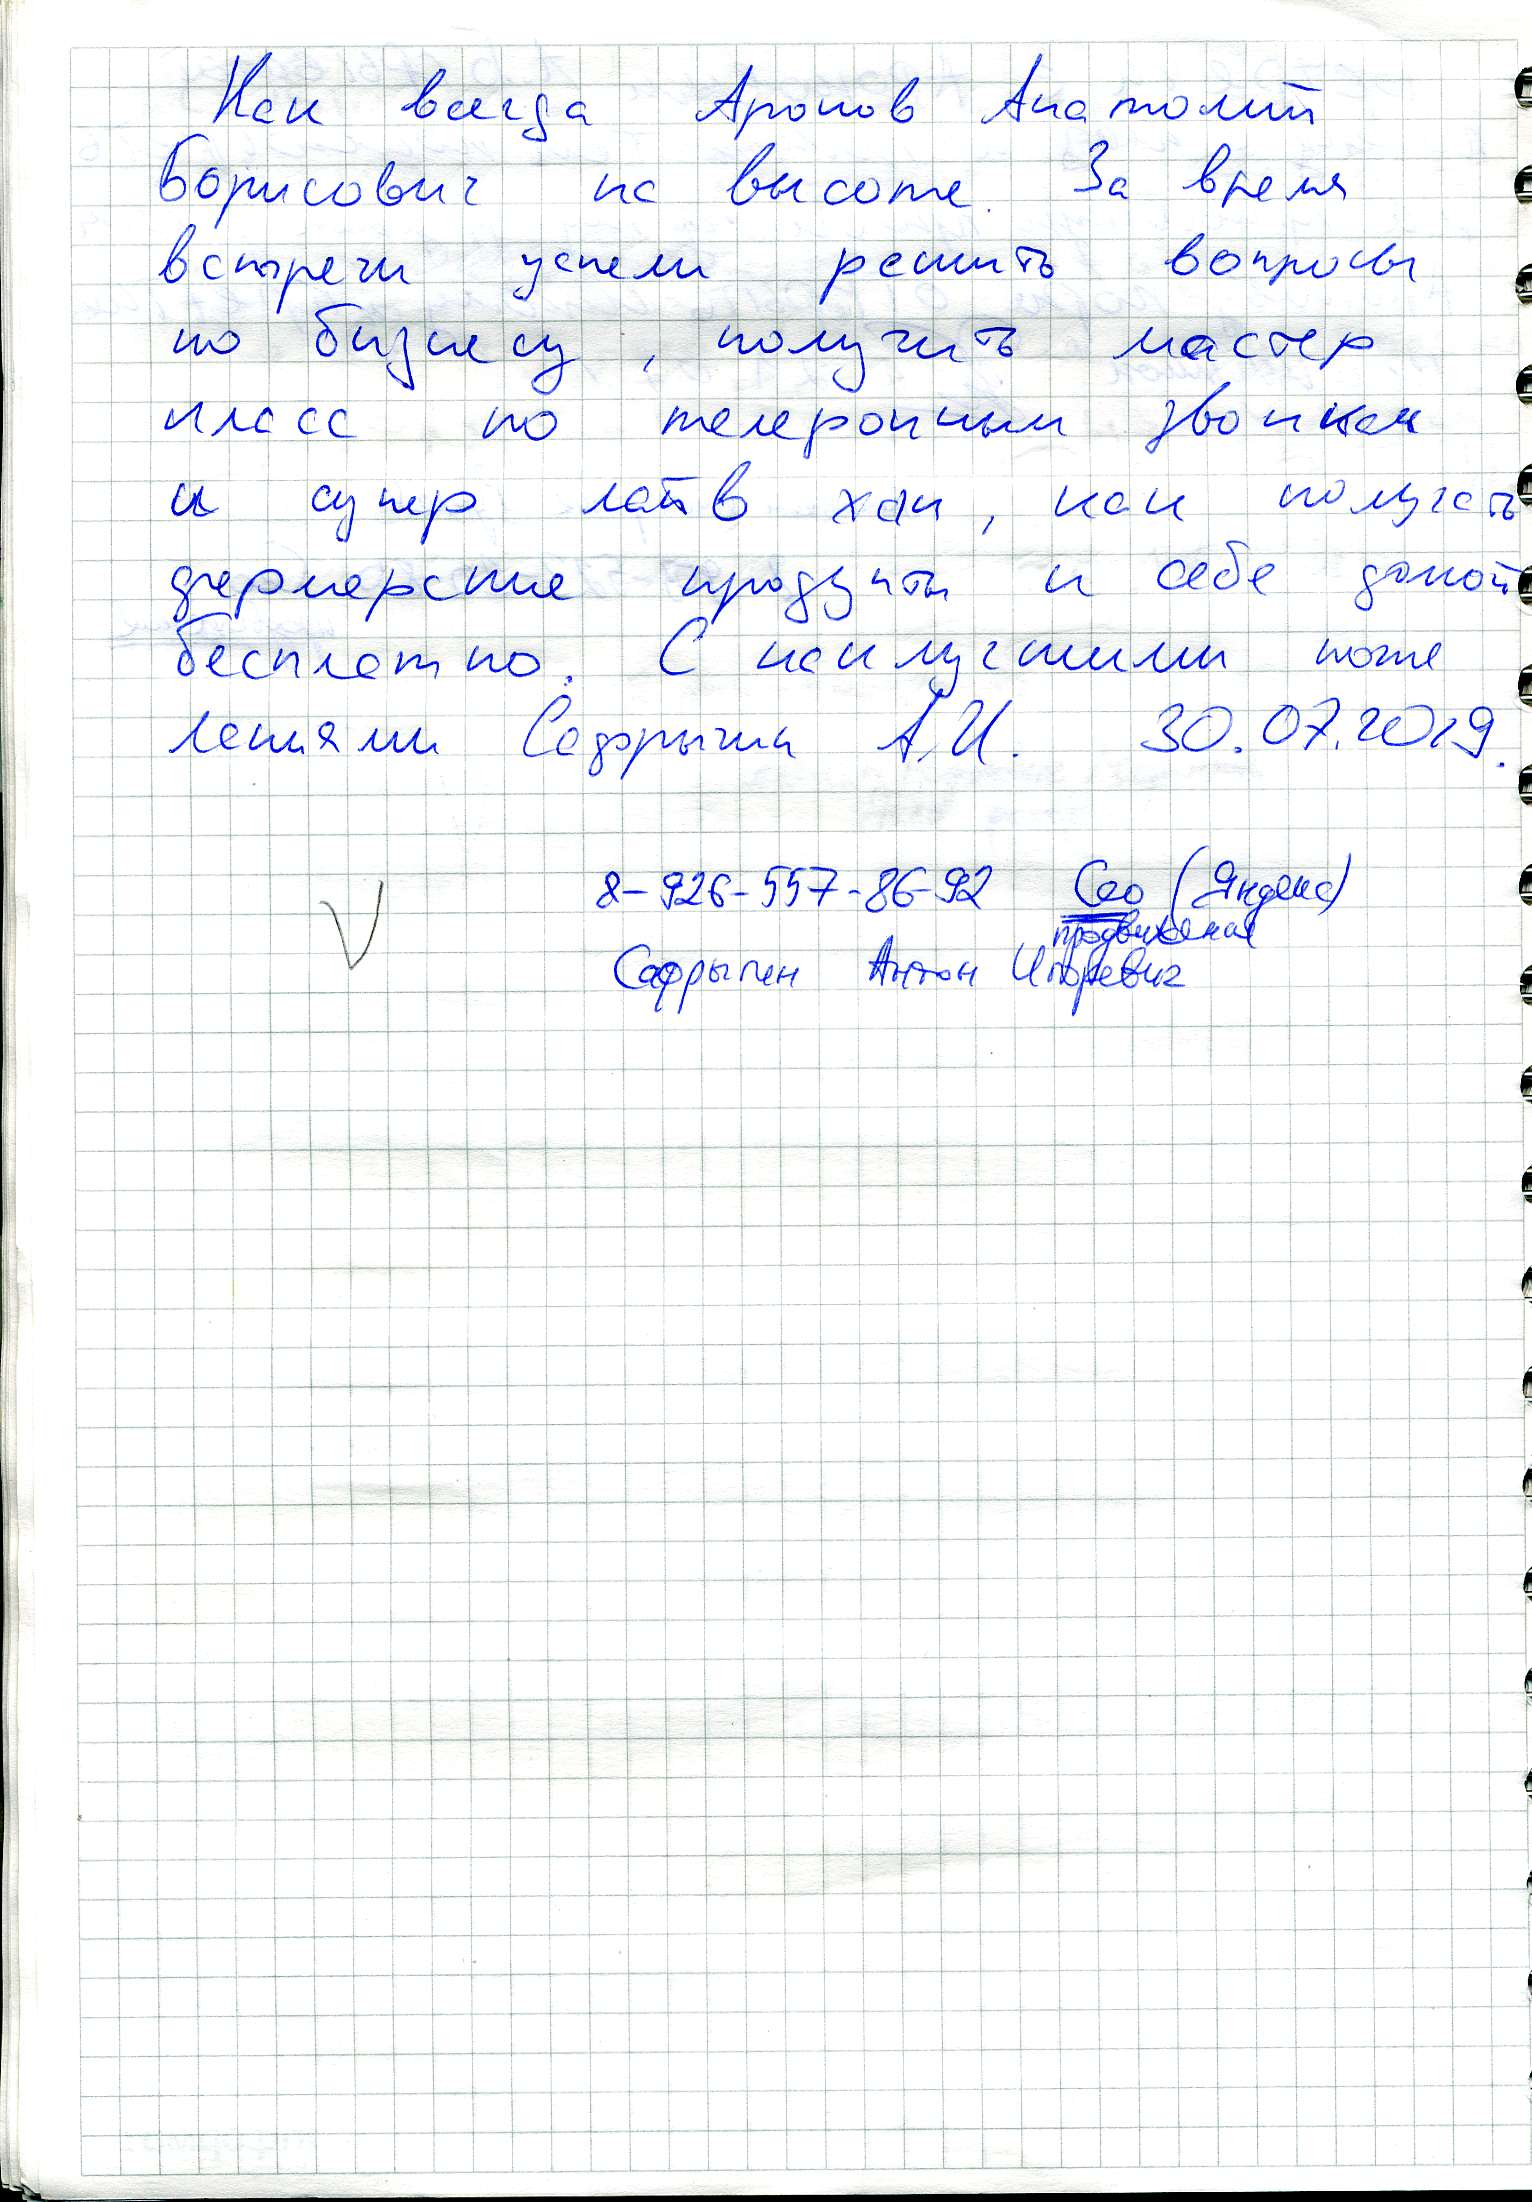 Как всегда Аронов Анатолий
Борисович на высоте. За время
встречи успели решить вопросы
по бизнесу, получить мастер
класс по телефонным звонкам
и супер лайв хак, как получать
фермерские продукты к себе домой
бесплатно. С наилучшими поже
ланиями Сафрыгин А.И. 30.07.2019.
8-926-557-86-92 Сео (Яндекс)
продвижения
Сафрыгин Антон Игоревич